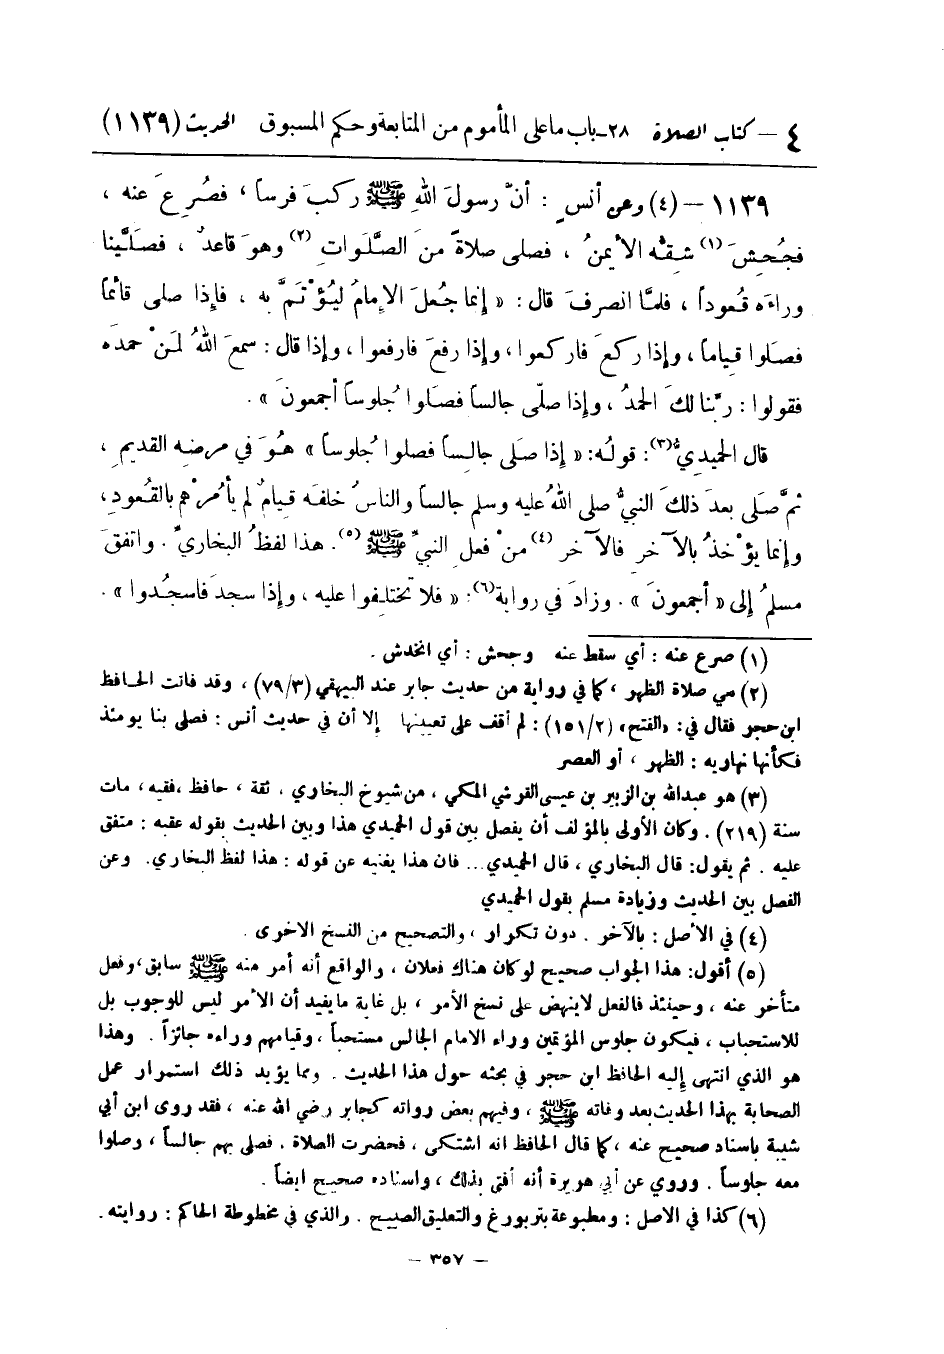 ٤ – كتاب الصلاة ٢٨ـ باب ما على المأموم من المتابعة وحكم المسبوق الحديث (١١٣٩)
١١٣٩ – (٤) وعن أنسٍ : أنّ رسولَ اللهِ ﷺ ركبَ فرساً ، فصُرِعَ عنه ،
فجُحِشَ (١) شِقُّه الأيمنُ ، فصلى صلاةً منَ الصَّلَواتِ (٢) وهوَ قاعدٌ ، فصلَّينا
وراءَه قُعوداً ، فلمَّا انصرفَ قال : « إنما جُعلَ الإمامُ ليُؤْتمَّ به ، فإذا صلى قائماً
فصَلوا قياماً ، وإذا ركعَ فاركعوا ، وإذا رفعَ فارفعوا ، وإذا قال : سمعَ اللهُ لمَنْ حمدَه
فقولوا : ربَّنا لكَ الحمدُ ، وإذا صلّى جالساً فصَلوا جُلوساً أجمعونَ » .
قال الحميديُّ (٣) : قولُه : « إذا صَلى جالساً فصلوا جُلوساً » هوَ في مرضِه القديمِ ،
ثمَّ صَلى بعدَ ذلكَ النبيُّ صلى اللهُ عليه وسلم جالساً والناسُ خلفَه قيامٌ لم يأمُرْهم بالقُعودِ ،
وإنما يؤْخذُ بالآخرِ فالآخرِ (٤) منْ فعلِ النبيِّ ﷺ (٥) . هذا لفظُ البخاريِّ . واتفقَ
مسلمٌ إلى « أجمعونَ » . وزادَ في روايةٍ (٦) : « فلا تختلِفوا عليه ، وإذا سجدَ فاسجُدوا » .
(١) صرع عنه : أي سقط عنه وجحش : أي انخدش .
(٢) هي صلاة الظهر ، كما في رواية من حديث جابر عند البيهقي (٧٩/٣) ، وقد فاتت الحافظ
ابن حجر فقال في : «الفتح» (١٥١/٢) : لم أقف على تعيينها إلا أن في حديث أنس : فصلى بنا يومئذ
فكأنها نهاريه : الظهر ، أو العصر
(٣) هو عبدالله بن الزبير بن عيسى القرشي المكي ، من شيوخ البخاري ، ثقة ، حافظ ، فقيه ، مات
سنة (٢١٩) . وكان الأولى بالمؤلف أن يفصل بين قول الحميدي هذا وبين الحديث بقوله عقبه : متفق
عليه . ثم يقول : قال البخاري ، قال الحميدي... فان هذا يغنيه عن قوله : هذا لفظ البخاري . وعن
الفصل بين الحديث وزيادة مسلم بقول الحميدي
(٤) في الأصل : بالآخر . دون تكرار ، والتصحيح من النسخ الاخرى .
(٥) أقول : هذا الجواب صحيح لو كان هناك فعلان ، والواقع أنه أمر منه ﷺ سابق ، وفعل
متأخر عنه ، وحينئذ فالفعل لاينهض على نسخ الأمر ، بل غاية ما يفيد أن الأمر ليس للوجوب بل
للاستحباب ، فيكون جلوس المؤتمين وراء الامام الجالس مستحباً ، وقيامهم وراءه جائزاً . وهذا
هو الذي انتهى إليه الحافظ ابن حجر في بحثه حول هذا الحديث . ومما يؤيد ذلك استمرار عمل
الصحابة بهذا الحديث بعد وفاته ﷺ ، وفيهم بعض رواته كجابر رضي الله عنه ، فقد روى ابن أبي
شيبة باسناد صحيح عنه ، كما قال الحافظ انه اشتكى ، فحضرت الصلاة . فصلى بهم جالساً ، وصلوا
معه جلوساً . وروي عن أبي هريرة أنه أفتى بذلك ، واسناده صحيح ايضاً .
(٦) كذا في الاصل : ومطبوعة بتربورغ والتعليق الصبيح . والذي في مخطوطة الحاكم : روايته .
– ٣٥٧ –